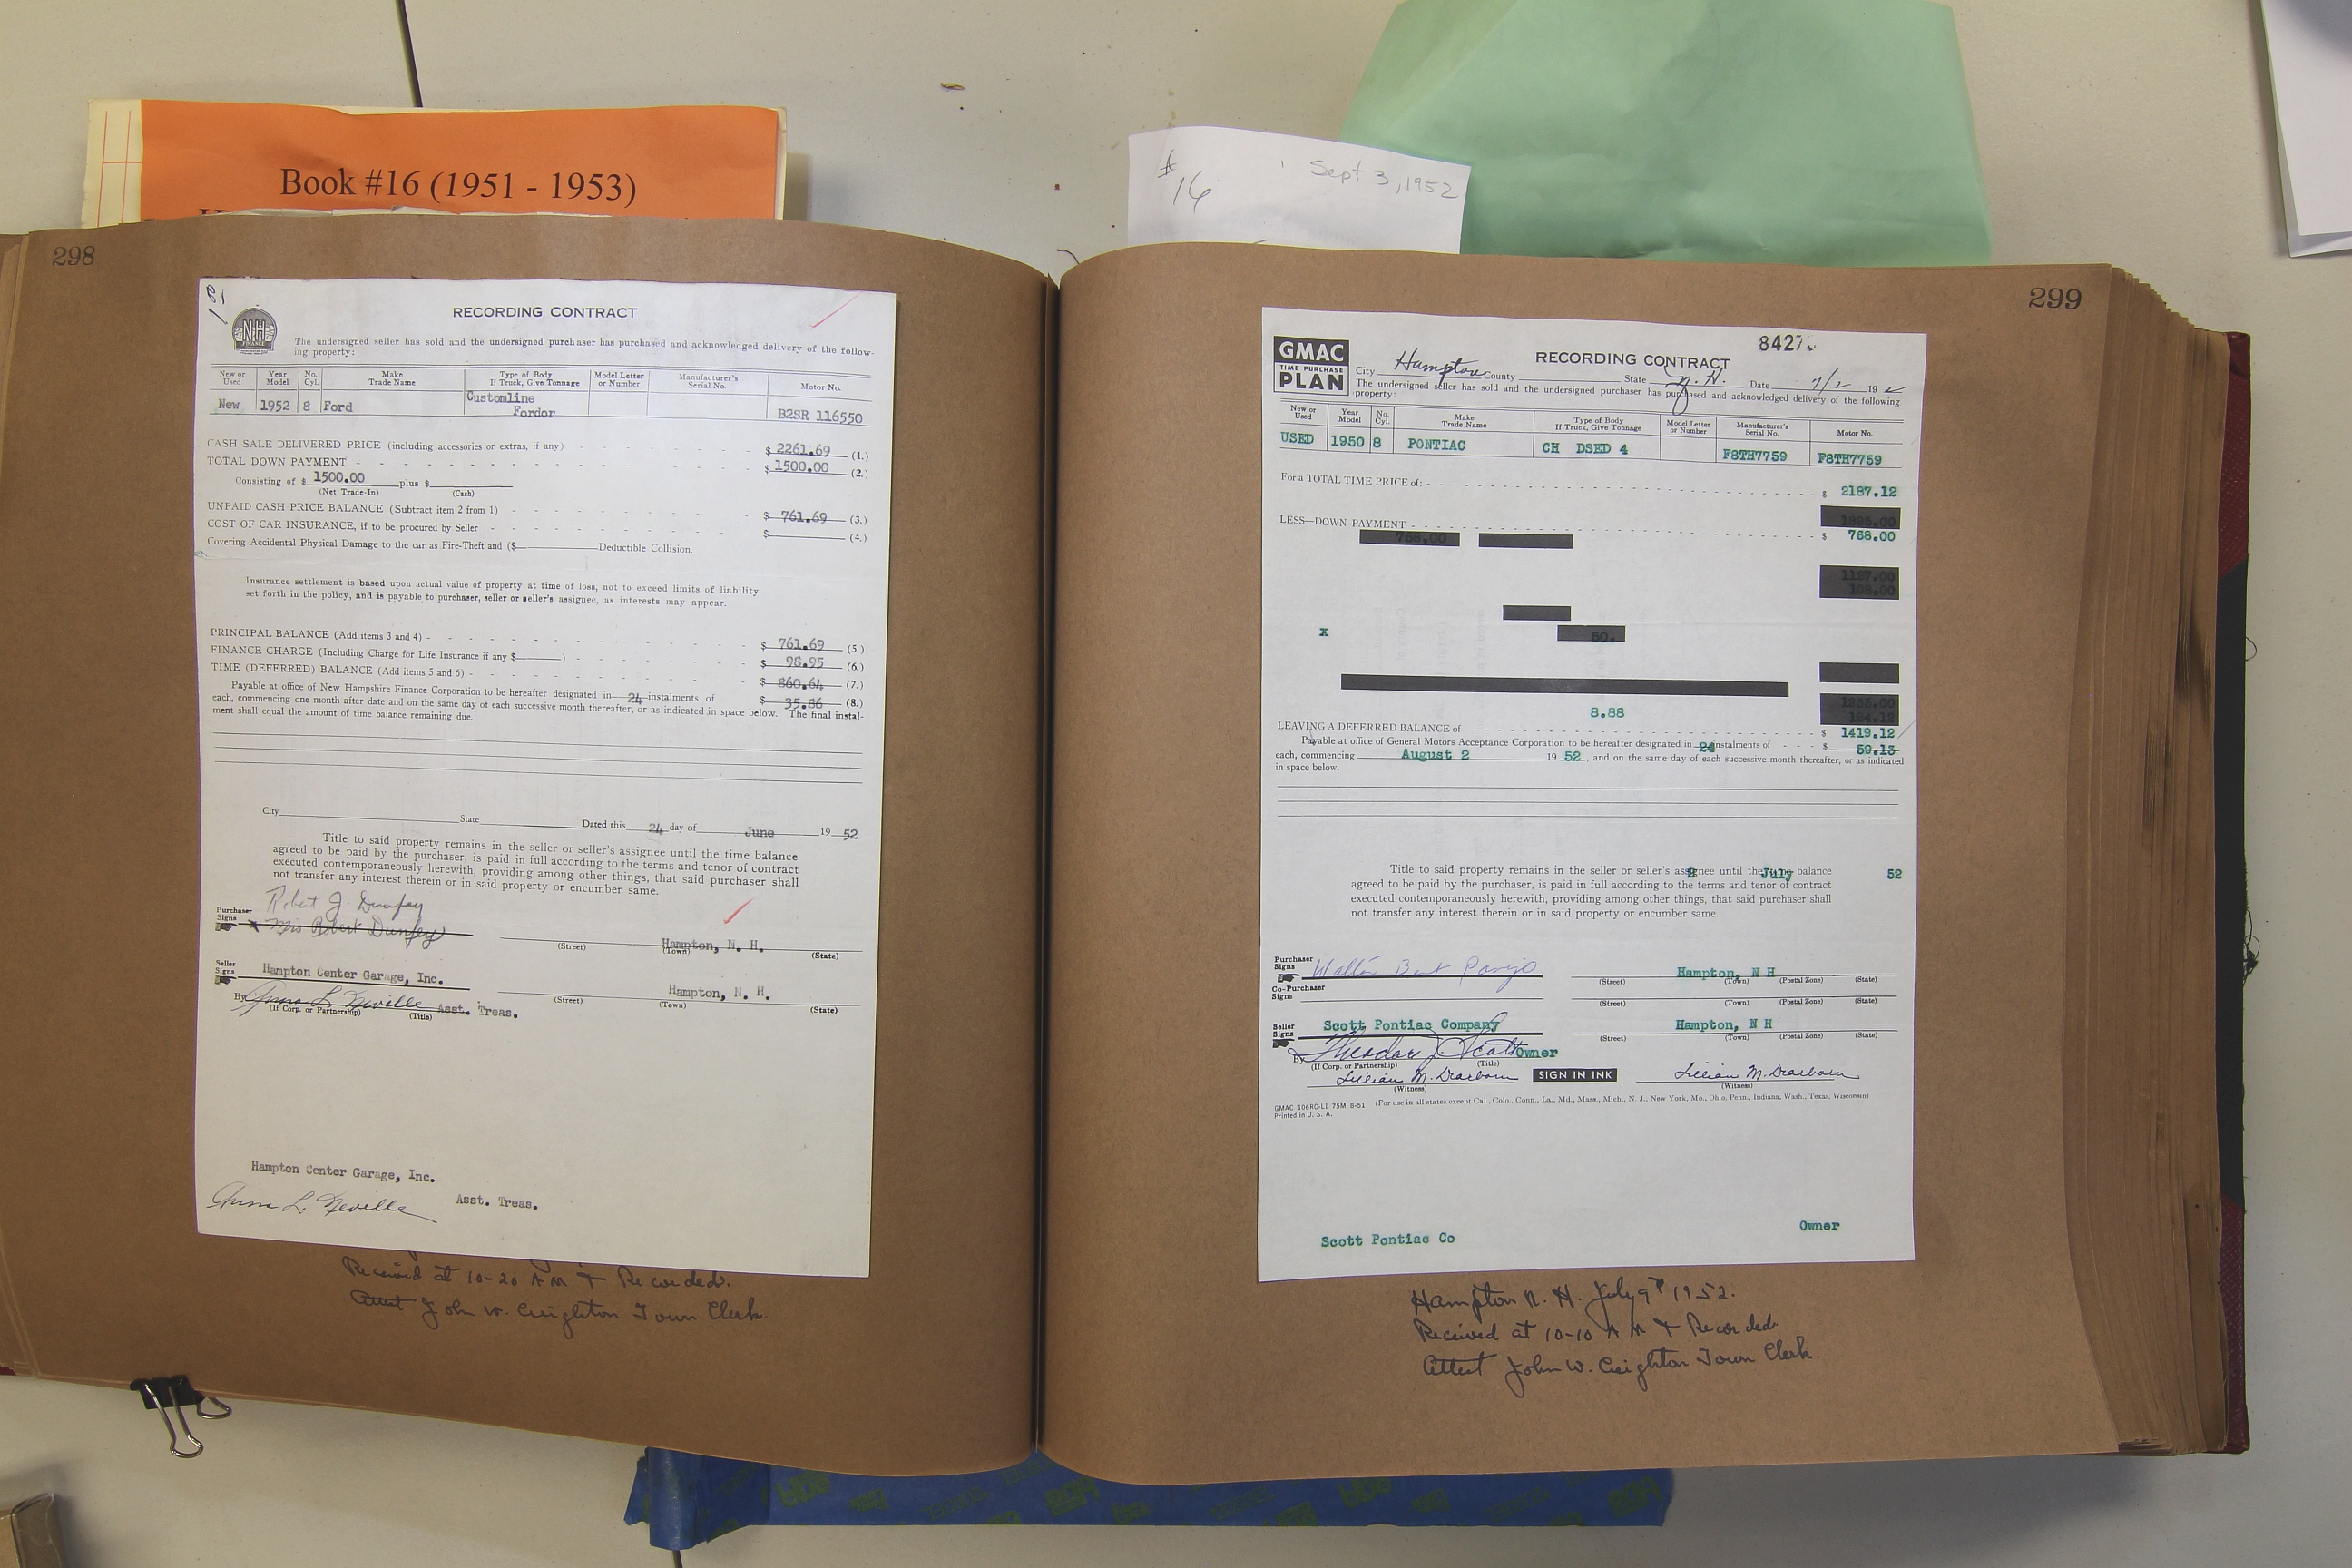 Book #16 (1951 - 1953)
# 16 Sept 3, 1952
298
NH
FINANCE
RECORDING CONTRACT
The undersigned seller has sold and the undersigned purchaser has purchased and acknowledged delivery of the follow-
ing property:
New or Used Year Model No. Cyl. Make Trade Name Type of Body If Truck, Give Tonnage Model Letter or Number Manufacturer's Serial No. Motor No.
New 1952 8 Ford Customline Fordor B2SR 116550
CASH SALE DELIVERED PRICE (including accessories or extras, if any) $ 2261.69 (1.)
TOTAL DOWN PAYMENT $ 1500.00 (2.)
Consisting of $ 1500.00 plus $
(Net Trade-In) (Cash)
UNPAID CASH PRICE BALANCE (Subtract item 2 from 1) $ 761.69 (3.)
COST OF CAR INSURANCE, if to be procured by Seller $ (4.)
Covering Accidental Physical Damage to the car as Fire-Theft and ($ Deductible Collision.
Insurance settlement is based upon actual value of property at time of loss, not to exceed limits of liability
set forth in the policy, and is payable to purchaser, seller or seller's assignee, as interests may appear.
PRINCIPAL BALANCE (Add items 3 and 4) $ 761.69 (5.)
FINANCE CHARGE (Including Charge for Life Insurance if any $ ) $ 98.95 (6.)
TIME (DEFERRED) BALANCE (Add items 5 and 6) $ 860.64 (7.)
Payable at office of New Hampshire Finance Corporation to be hereafter designated in 24 instalments of $ 35.86 (8.)
each, commencing one month after date and on the same day of each successive month thereafter, or as indicated in space below. The final instal-
ment shall equal the amount of time balance remaining due.
City State Dated this 24 day of June 19 52
Title to said property remains in the seller or seller's assignee until the time balance
agreed to be paid by the purchaser, is paid in full according to the terms and tenor of contract
executed contemporaneously herewith, providing among other things, that said purchaser shall
not transfer any interest therein or in said property or encumber same.
Robert J. Dunfey
Purchaser Signs Mrs Robert Dunfey Hampton, N. H.
(Street) (Town) (State)
Seller Signs Hampton Center Garage, Inc. Hampton, N. H.
By Anna L. Neville Asst. Treas. (Street) (Town) (State)
(If Corp. or Partnership) (Title)
Hampton Center Garage, Inc.
Anna L. Neville Asst. Treas.
Received at 10-20 AM & Recorded.
Attest John W. Creighton Town Clerk.
299
GMAC
TIME PURCHASE
PLAN
RECORDING CONTRACT
City Hampton County State N. H. Date 7/2 19
The undersigned seller has sold and the undersigned purchaser has purchased and acknowledged delivery of the following
property:
New or Used Year Model No. Cyl. Make Trade Name Type of Body If Truck, Give Tonnage Model Letter or Number Manufacturer's Serial No. Motor No.
USED 1950 8 PONTIAC CH DSED 4 F8TH7759 F8TH7759
For a TOTAL TIME PRICE of: $ 2187.12
LESS—DOWN PAYMENT $ 768.00
x
8.88
LEAVING A DEFERRED BALANCE of $ 1419.12
Payable at office of General Motors Acceptance Corporation to be hereafter designated in 24 instalments of $ 59.13
each, commencing August 2 19 52, and on the same day of each successive month thereafter, or as indicated
in space below.
2 July 52
Title to said property remains in the seller or seller's assignee until the time balance
agreed to be paid by the purchaser, is paid in full according to the terms and tenor of contract
executed contemporaneously herewith, providing among other things, that said purchaser shall
not transfer any interest therein or in said property or encumber same.
Purchaser Signs Hampton, N H
(Street) (Town) (Postal Zone) (State)
Co-Purchaser Signs
(Street) (Town) (Postal Zone) (State)
Seller Signs Scott Pontiac Company Hampton, N H
(Street) (Town) (Postal Zone) (State)
By Theodore J. Scott Owner
(If Corp. or Partnership) (Title)
Lillian M. Dearborn SIGN IN INK Lillian M. Dearborn
(Witness) (Witness)
GMAC 106RC-LI 75M 8-51 (For use in all states except Cal., Colo., Conn., La., Md., Mass., Mich., N. J., New York, Mo., Ohio, Penn., Indiana, Wash., Texas, Wisconsin)
Printed in U. S. A.
Scott Pontiac Co Owner
Hampton N. H. July 9th 1952.
Received at 10-10 AM & Recorded
Attest John W. Creighton Town Clerk.